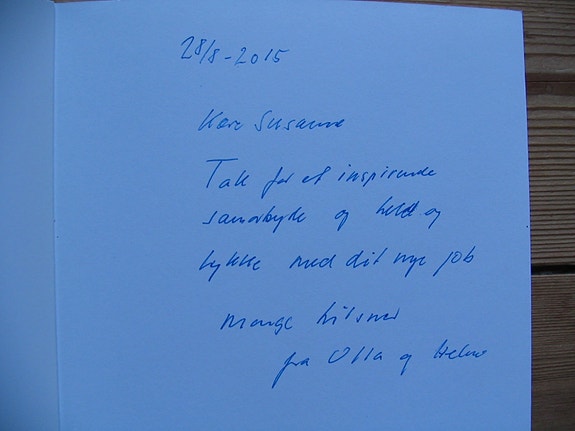 28/8-2015
Kære Susanne
Tak for et inspirerende
samarbejde og held og
lykke med dit nye job
Mange hilsner
fra Ulla og